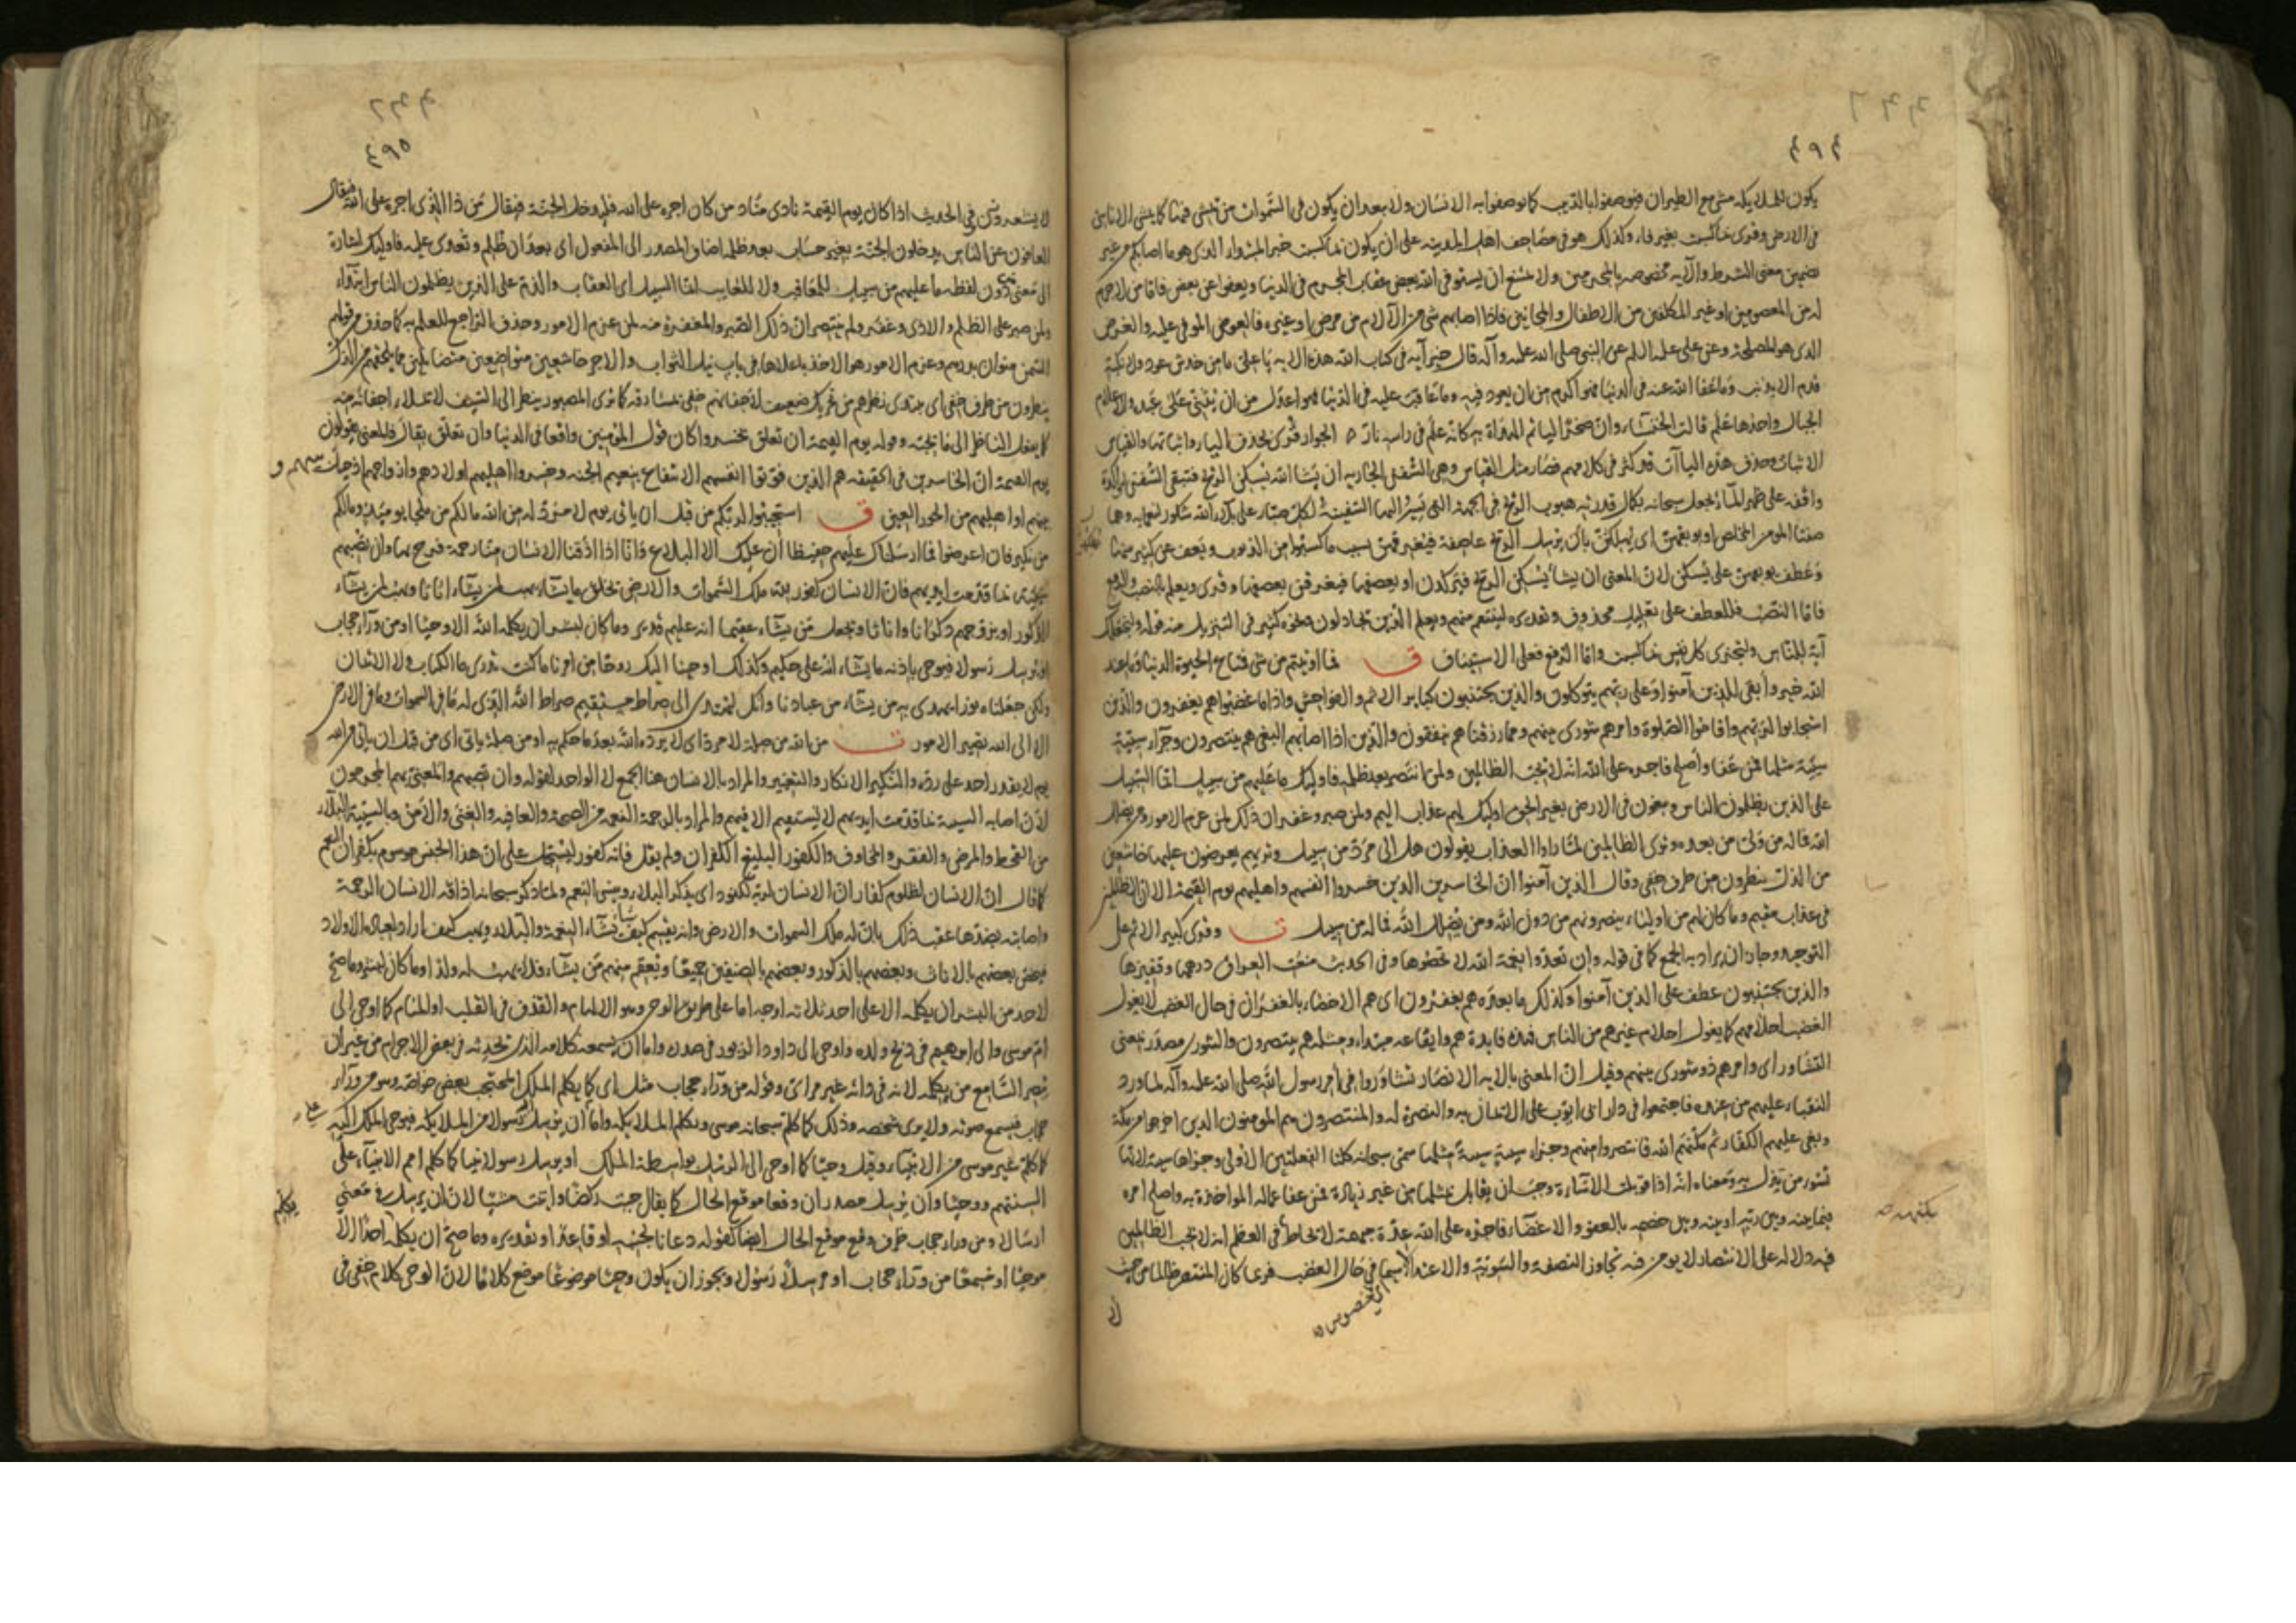 ٤٩٤
يكون للملايكة مشي مع الطيران فيوصفوا بالدبيب كما يوصفوا به الانسان ولا يبعد ان يكون في السموات من يمشي فيها كما يمشي الاناس
في الارض وقرى بما كسبت بغير فاء وكذلك هو في مصاحف اهل المدينة على ان يكون بما كسبت خبر المبتداء الذي هو ما اصابكم من غير
تضمين معنى الشرط والآية مخصوصة بالمجرمين ولا يمتنع ان يستوفي الله بعض عقاب المجرم في الدنيا ويعفوا عن بعض فاما من لا جرم
له من المعصومين او غير المكلفين من الاطفال والمجانين فاذا اصابهم شي من الآلام من مرض او غيره فالعوض الموفى عليه والغرض
الذي هو للمصلحة وعن علي عليه السلم عن النبي صلى الله عليه وآله قال خير آية في كتاب الله هذه الاية يا علي ما من خدش عود ولا نكبة
قدم الا بذنب وما عفا الله عنه في الدنيا فهو اكرم من ان يعود فيه وما عاقبت عليه في الدنيا فهو اعدل من ان يثني على عبده والاعلام
الجبال واحدها علم قالت الخنساء وان صخرا لياتم الهداة به كانه علم في راسه نار ٥ الجوار قرى بحذف الياء واثباتها والقياس
الاثبات وحذف هذه الياآت قد كثر في كلامهم فصار مثل القياس وهي السفن الجارية ان يشا الله يسكن الريح فتبقى السفن راكدة
واقفة على ظهر الماء يجعل سبحانه بكمال قدرته هبوب الريح في الجهة التي تسير اليها السفينة لكل صبار على بلاء الله شكور لنعمايه وهما
صفتا المومن المخلص او يوبقهن اي يهلكهن بان يرسل الريح عاصفة فيغرقهن بسبب ما كسبوا من الذنوب ويعف عن كثير منها
وعطف يوبقهن على يسكن لان المعنى ان يشأ يسكن الريح فيركدن او يعصفها فيغرقن بعصفها وقرى ويعلم بالنصب والرفع
فاما النصب فللعطف على تعليل محذوف وتقديره لينتقم منهم ويعلم الذين يجادلون ونحوه كثير في التنزيل منه قوله ولنجعلك
آية للناس ولتجزى كل نفس بما كسبت واما الرفع فعلى الاستيناف ق فما اوتيتم من شي فمتاع الحيوة الدنيا وما عند
الله خير وأبقى للذين آمنوا وعلى ربهم يتوكلون والذين يجتنبون كباير الاثم والفواحش واذا ما غضبوا هم يغفرون والذين
استجابوا لربهم واقاموا الصلوة وامرهم شورى بينهم ومما رزقناهم ينفقون والذين اذا اصابهم البغي هم ينتصرون وجزآء سيئة
سيئة مثلها فمن عفا واصلح فاجره على الله انه لا يحب الظالمين ولمن انتصر بعد ظلمه فاوليك ما عليهم من سبيل انما السبيل
على الذين يظلمون الناس ويبغون في الارض بغير الحق اوليك لهم عذاب اليم ولمن صبر وغفر ان ذلك لمن عزم الامور ومن يضلل
الله فما له من ولي من بعده وترى الظالمين لما راوا العذاب يقولون هل الى مرد من سبيل وتريهم يعرضون عليها خاشعين
من الذل ينظرون من طرف خفي وقال الذين آمنوا ان الخاسرين الذين خسروا انفسهم واهليهم يوم القيمة الا ان الظالمين
في عذاب مقيم وما كان لهم من اولياء ينصرونهم من دون الله ومن يضلل الله فما له من سبيل ت وقرى كبير الاثم على
التوحيد وجاز ان يراد به الجمع كما في قوله وان تعدوا نعمة الله لا تحصوها وفي الحديث منعت العراق درهمها وقفيزها
والذين يجتنبون عطف على الذين آمنوا وكذلك ما بعده هم يغفرون اي هم الاخصاء بالغفران في حال الغضب لا يغول
الغضب احلامهم كما يغول احلام غيرهم من الناس فهذه فايدة هم وايقاعه مبتداء ومثله هم ينتصرون والشورى مصدر بمعنى
التشاور اي وامرهم ذو شورى بينهم وقيل ان المعني بالاية الانصار تشاوروا في امر رسول الله صلى الله عليه وآله لما ورد
النقباء عليهم من عنده فاجتمعوا في دار ابي ايوب على الايمان به والنصرة له والمنتصرون هم المومنون الذين اخرجوا من مكة
وبغى عليهم الكفار ثم مكنهم الله فانتصروا منهم وجزاء سيئة سيئة مثلها سمى سبحانه كلتا الفعلتين الاولى وجزاها سيئة لانها
تسوء من ينزل به ومعناه انه اذا قوبلت الاساءة وجب ان يقابل بمثلها من غير زيادة فمن عفا عما له المواخذة به واصلح امره
فيما بينه وبين ربه او بينه وبين خصمه بالعفو والاغضاء فاجره على الله عدة مبهمة لا تحاط في العظم انه لا يحب الظالمين
فيه دلالة على الانتصار لا يومن فيه تجاوز التسوية والاعتداء لا سيما في حال الغضب فربما كان المنتصر ظالما من حيث
لا
٤٩٥
لا يشعر وعن في الحديث اذا كان يوم القيمة نادى مناد من كان اجره على الله فليدخل الجنة فيقال من ذا الذي اجره على الله فيقال
العافون عن الناس يدخلون الجنة بغير حساب بعد ظلمه اضاف المصدر الى المفعول اي بعد ان ظلم وتعدى عليه فاوليك اشارة
الى معنى من دون لفظه ما عليهم من سبيل للمعاقب ولا للعايب انما السبيل اي العقاب والذم على الذين يظلمون الناس ابتداء
ولمن صبر على الظلم والاذى وغفر ولم ينتصر ان ذلك الصبر والمغفرة منه لمن عزم الامور وحذف الراجع للعلم به كما حذف من قولهم
السمن منوان بدرهم وعزم الامور هو الاخذ باعلاها في باب نيل الثواب والاجر خاشعين متواضعين متضايلين مما يلحقهم من الذل
ينظرون من طرف خفي اي يبتدي نظرهم من تحريك ضعيف لاجفانهم خفي بمسارقة كما ترى المصبور ينظر الى السيف لا يملاء اجفانه منه
كما يفعل الناظر الى ما يحبه وقوله يوم القيمة ان تعلق بخسروا كان قول المؤمنين واقعا في الدنيا وان تعلق بقال فالمعنى يقولون
يوم القيمة ان الخاسرين في الحقيقة هم الذين فوتوا انفسهم الانتفاع بنعيم الجنة وخسروا اهليهم اولادهم وازواجهم اذ حيل بينهم و
بينهم او اهليهم من الحور العين ق استجيبوا لربكم من قبل ان ياتي يوم لا مرد له من الله ما لكم من ملجا يوميذ وما لكم
من نكير فان اعرضوا فما ارسلناك عليهم حفيظا ان عليك الا البلاغ وانا اذا اذقنا الانسان منا رحمة فرح بها وان تصبهم
سيئة بما قدمت ايديهم فان الانسان كفور لله ملك السموات والارض يخلق ما يشاء يهب لمن يشاء اناثا ويهب لمن يشاء
الذكور او يزوجهم ذكرانا واناثا ويجعل من يشاء عقيما انه عليم قدير وما كان لبشر ان يكلمه الله الا وحيا او من ورآء حجاب
او يرسل رسولا فيوحي باذنه ما يشاء انه على حكيم وكذلك اوحينا اليك روحا من امرنا ما كنت تدرى ما الكتاب ولا الايمان
ولكن جعلناه نورا نهدى به من يشاء من عبادنا وانك لتهدى الى صراط مستقيم صراط الله الذى له ما في السموات وما في الارض
الا الى الله تصير الامور ت من الله من صلة لا مرد اى لا يرده الله بعد ما حكم به او من صلة ياتي اى من قبل ان ياتي من الله
يوم لا يقدر احد على رده والنكير الانكار والتغيير والمراد بالانسان هنا الجمع لا الواحد لقوله وان تصبهم والمعني بهم المجرمون
لان اصابة السيئة بما قدمت ايديهم لا يستقيم الا فيهم والمراد بالرحمة النعمة من الصحة والعافية والغنى والامن وبالسيئة البلاء
من القحط والمرض والفقر والمخاوف والكفور البليغ الكفران ولم يقل فانه كفور ليستجل على ان هذا الجنس موسوم بكفران النعم
كما قال ان الانسان لظلوم كفار ان الانسان لربه لكنود اى يذكر البلاء وينسى النعم ولما ذكر سبحانه اذاقة الانسان الرحمة
واصابته بضدها عقب ذلك بان له ملك السموات والارض وانه يقسم كيف يشاء النعمة والبلاء ويهب كيف اراد لعباده الاولاد
فيخص بعضهم بالاناث وبعضهم بالذكور وبعضهم بالصنفين جميعا ويعقم منهم من يشاء فلا يهب له ولدا وما كان لبشر وما صح
لاحد من البشر ان يكلمه الا على احد ثلاثة اوجه اما على طريق الوحي وهو الالهام والقذف في القلب او المنام كما اوحى الى
ام موسى والى ابرهيم في ذبح ولده واوحى الى داود الزبور في صدره واما ان يسمعه كلامه الذى يحدثه في بعض الاجرام من غير ان
يبصر السامع من يكلمه لانه في ذاته غير مرائ وقوله من ورآء حجاب مثل اى كما يكلم الملك المحتجب بعض خواصه وهو من ورآء
حجاب فيسمع صوته ولا يرى شخصه وذلك كما كلم سبحانه موسى ويكلم الملايكة واما ان يرسل رسولا من الملايكة فيوحي الملك اليه
كما كلم غير موسى من الانبياء وقيل وحيا كما اوحى الى الرسل بواسطة الملك او يرسل رسولا نبيا كما كلم امم الانبياء على
السنتهم ووحيا وان يرسل مصدران وقعا موقع الحال كما يقال جيت ركضا واتيت مشيا لان ان يرسل في معنى
ارسالا ومن وراء حجاب ظرف وقع موقع الحال ايضا كقوله دعانا لجنبه او قاعدا وتقديره وما صح ان يكلم احدا الا
موحيا او مسمعا من ورآء حجاب او مرسلا رسولا ويجوز ان يكون وحيا موضوعا موضع كلاما لان الوحي كلام خفي في